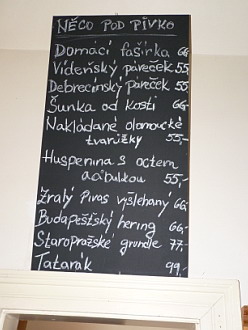 NĚCO POD PIVKO
Domácí fašírka 66,
Vídeňský páreček 55,
Debrecínský páreček 55,
Šunka od kosti 66,
Nakládané olomoucké
tvarůžky 55,-
Huspenina s octem
a cibulkou 55,-
Zralý Pivos vyšlehaný 66,
Budapešťský hering 66,-
Staropražské grundle 77,-
Tatarák 99,-